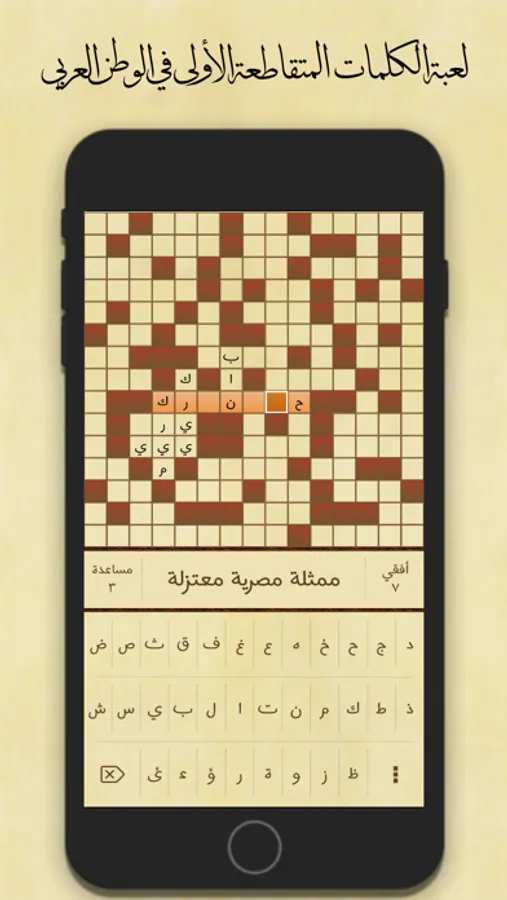 لعبة الكلمات المتقاطعة الأولى في الوطن العربي
ب
ا ك
ح ن ر ك
ي ر
ي ي ي
م
أفقي
٧
ممثلة مصرية معتزلة
مساعدة
٣
د ج ح خ ه ع غ ف ق ث ص ض
ذ ط ك م ن ت ا ل ب ي س ش
ظ ز و ة ر ؤ ء ئ